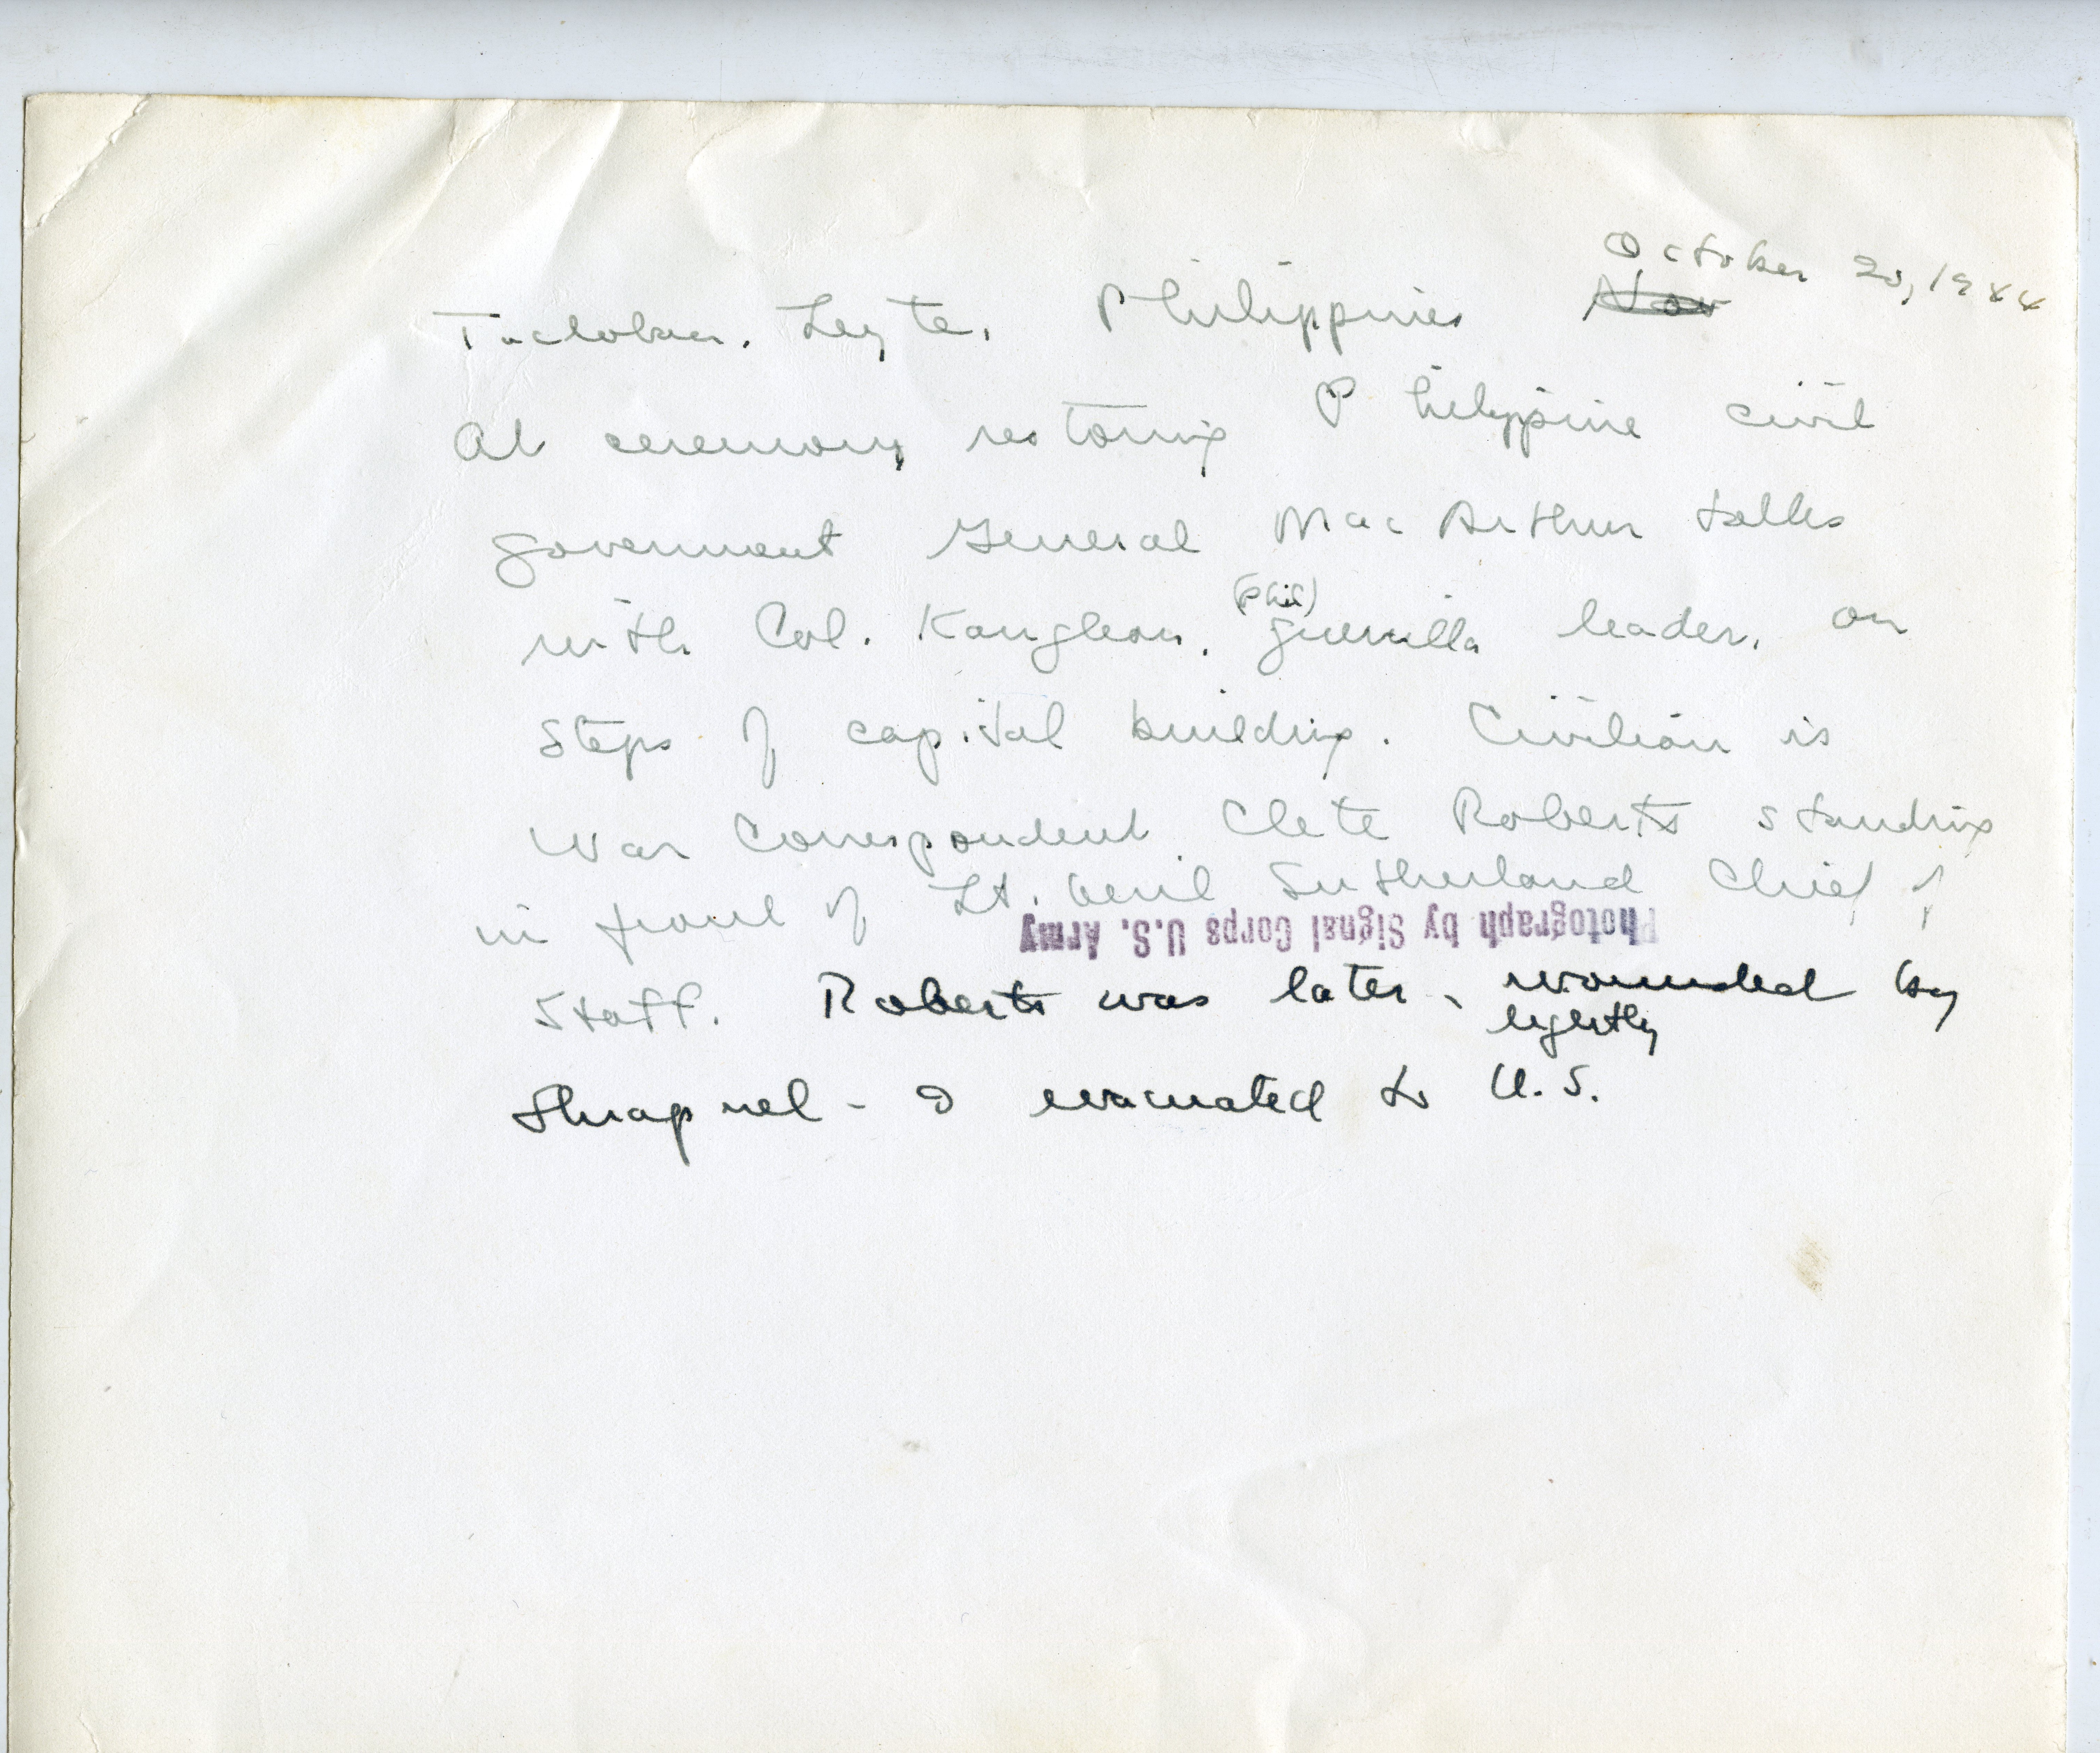 October 20, 1944
Tacloban. Leyte. Philippines Nov
At ceremony restoring Philippine civil
government General MacArthur talks
(Phil)
with Col. Kangleon. guerrilla leader. on
steps of capital building. Civilian is
War Correspondent Clete Roberts standing
in front of Lt. Genl Sutherland Chief of
Photograph by Signal Corps U.S. Army
Staff. Roberts was later wounded by
lightly
Shrapnel - & evacuated to U.S.